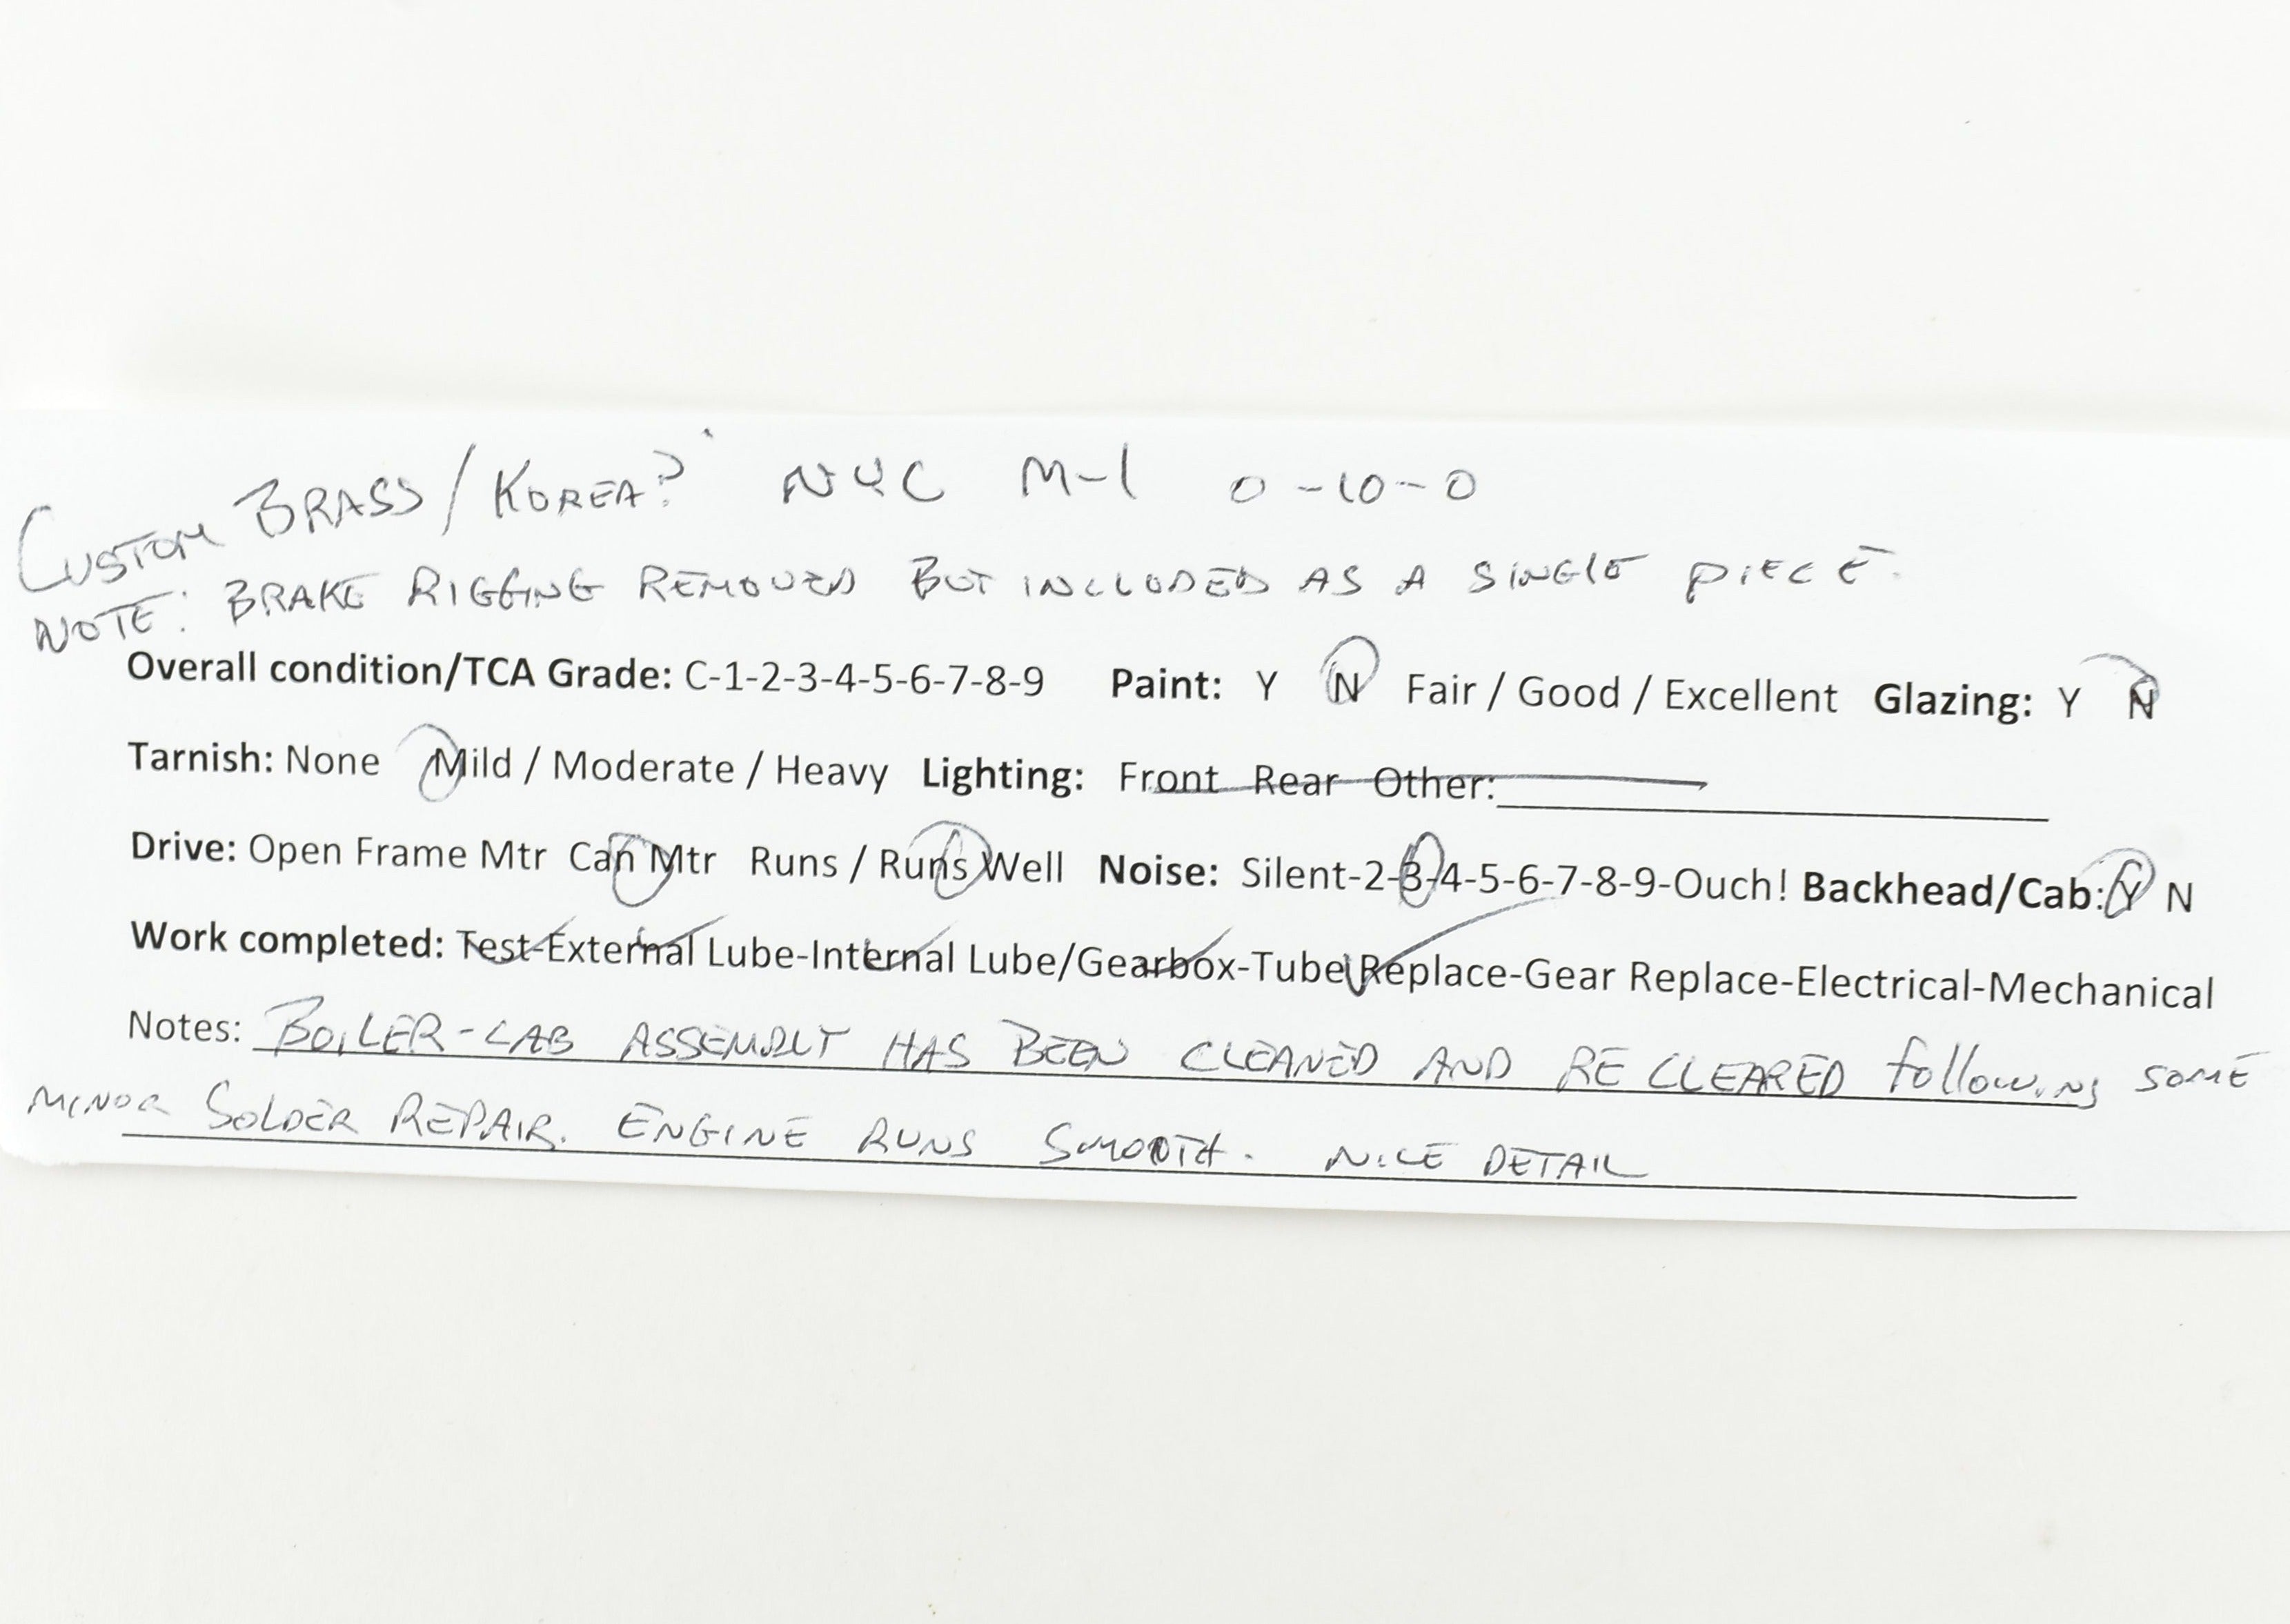 CUSTOM BRASS/KOREA? NYC M-1 0-10-0
NOTE: BRAKE RIGGING REMOVED BUT INCLUDED AS A SINGLE PIECE.
Overall condition/TCA Grade: C-1-2-3-4-5-6-7-8-9 Paint: Y N Fair / Good / Excellent Glazing: Y N
Tarnish: None Mild / Moderate / Heavy Lighting: Front Rear Other:
Drive: Open Frame Mtr Can Mtr Runs / Runs Well Noise: Silent-2-3-4-5-6-7-8-9-Ouch! Backhead/Cab: Y N
Work completed: Test-External Lube-Internal Lube/Gearbox-Tube Replace-Gear Replace-Electrical-Mechanical
Notes: BOILER-CAB ASSEMBLY HAS BEEN CLEANED AND RE CLEARED following SOME
MINOR SOLDER REPAIR. ENGINE RUNS SMOOTH. NICE DETAIL